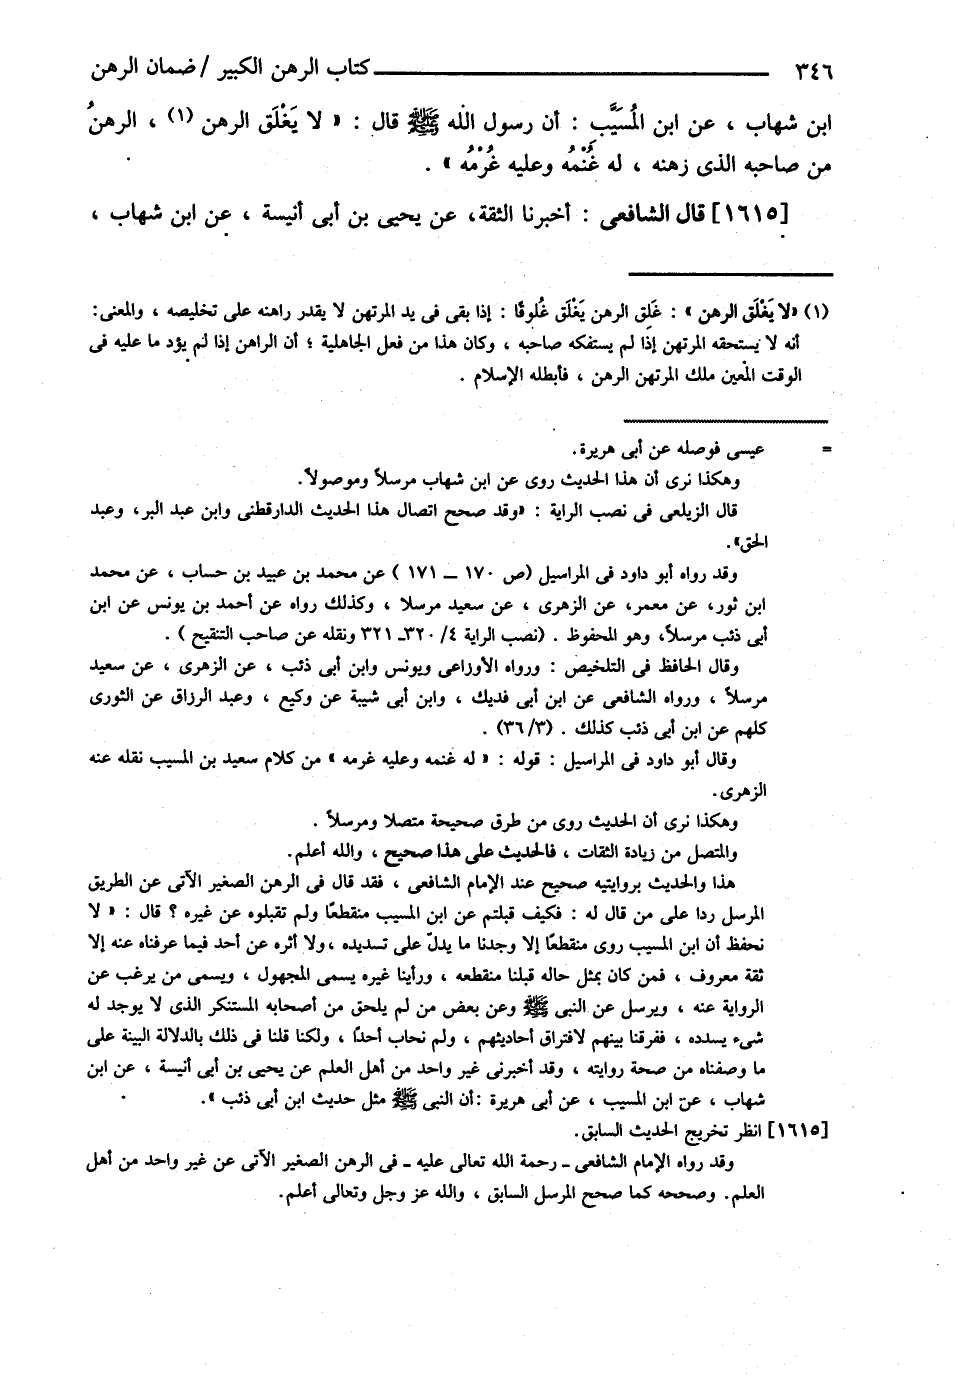 ٣٤٦ كتاب الرهن الكبير / ضمان الرهن
ابن شهاب ، عن ابن المُسَيَّب : أن رسول الله ﷺ قال : « لا يَغْلَق الرهن (١) ، الرهنُ
من صاحبه الذى رهنه ، له غُنْمُه وعليه غُرْمُه » .
[١٦١٥] قال الشافعى : أخبرنا الثقة، عن يحيى بن أبى أنيسة ، عن ابن شهاب ،
(١) «لا يَغْلَق الرهن » : غَلِق الرهن يَغْلَق غُلوقًا : إذا بقى فى يد المرتهن لا يقدر راهنه على تخليصه ، والمعنى:
أنه لا يستحقه المرتهن إذا لم يستفكه صاحبه ، وكان هذا من فعل الجاهلية ؛ أن الراهن إذا لم يؤد ما عليه فى
الوقت المُعين ملك المرتهن الرهن ، فأبطله الإسلام .
= عيسى فوصله عن أبى هريرة.
وهكذا نرى أن هذا الحديث روى عن ابن شهاب مرسلاً وموصولاً.
قال الزيلعى فى نصب الراية : «وقد صحح اتصال هذا الحديث الدارقطنى وابن عبد البر، وعبد
الحق».
وقد رواه أبو داود فى المراسيل (ص ١٧٠ ــ ١٧١ ) عن محمد بن عبيد بن حساب ، عن محمد
ابن ثور، عن معمر، عن الزهرى ، عن سعيد مرسلا ، وكذلك رواه عن أحمد بن يونس عن ابن
أبى ذئب مرسلاً، وهو المحفوظ . (نصب الراية ٤/ ٣٢٠ـ ٣٢١ ونقله عن صاحب التنقيح ) .
وقال الحافظ فى التلخيص : ورواه الأوزاعى ويونس وابن أبى ذئب ، عن الزهرى ، عن سعيد
مرسلاً ، ورواه الشافعى عن ابن أبى فديك ، وابن أبى شيبة عن وكيع ، وعبد الرزاق عن الثورى
كلهم عن ابن أبى ذئب كذلك . (٣/ ٣٦) .
وقال أبو داود فى المراسيل : قوله : « له غنمه وعليه غرمه » من كلام سعيد بن المسيب نقله عنه
الزهرى.
وهكذا نرى أن الحديث روى من طرق صحيحة متصلا ومرسلاً .
والمتصل من زيادة الثقات ، فالحديث على هذا صحيح ، والله أعلم.
هذا والحديث بروايتيه صحيح عند الإمام الشافعى ، فقد قال فى الرهن الصغير الآتى عن الطريق
المرسل ردا على من قال له : فكيف قبلتم عن ابن المسيب منقطعًا ولم تقبلوه عن غيره ؟ قال : « لا
نحفظ أن ابن المسيب روى منقطعًا إلا وجدنا ما يدلّ على تسديده ،ولا أثره عن أحد فيما عرفناه عنه إلا
ثقة معروف ، فمن كان بمثل حاله قبلنا منقطعه ، ورأينا غيره يسمى المجهول ، ويسمى من يرغب عن
الرواية عنه ، ويرسل عن النبى ﷺ وعن بعض من لم يلحق من أصحابه المستنكر الذى لا يوجد له
شىء يسدده ، ففرقنا بينهم لافتراق أحاديثهم ، ولم نحاب أحدًا ، ولكنا قلنا فى ذلك بالدلالة البينة على
ما وصفناه من صحة روايته ، وقد أخبرنى غير واحد من أهل العلم عن يحيى بن أبى أنيسة ، عن ابن
شهاب ، عن ابن المسيب ، عن أبى هريرة :أن النبى ﷺ مثل حديث ابن أبى ذئب ».
[١٦١٥] انظر تخريج الحديث السابق.
وقد رواه الإمام الشافعى ـ رحمة الله تعالى عليه ـ فى الرهن الصغير الآتى عن غير واحد من أهل
العلم. وصححه كما صحح المرسل السابق ، والله عز وجل وتعالى أعلم.